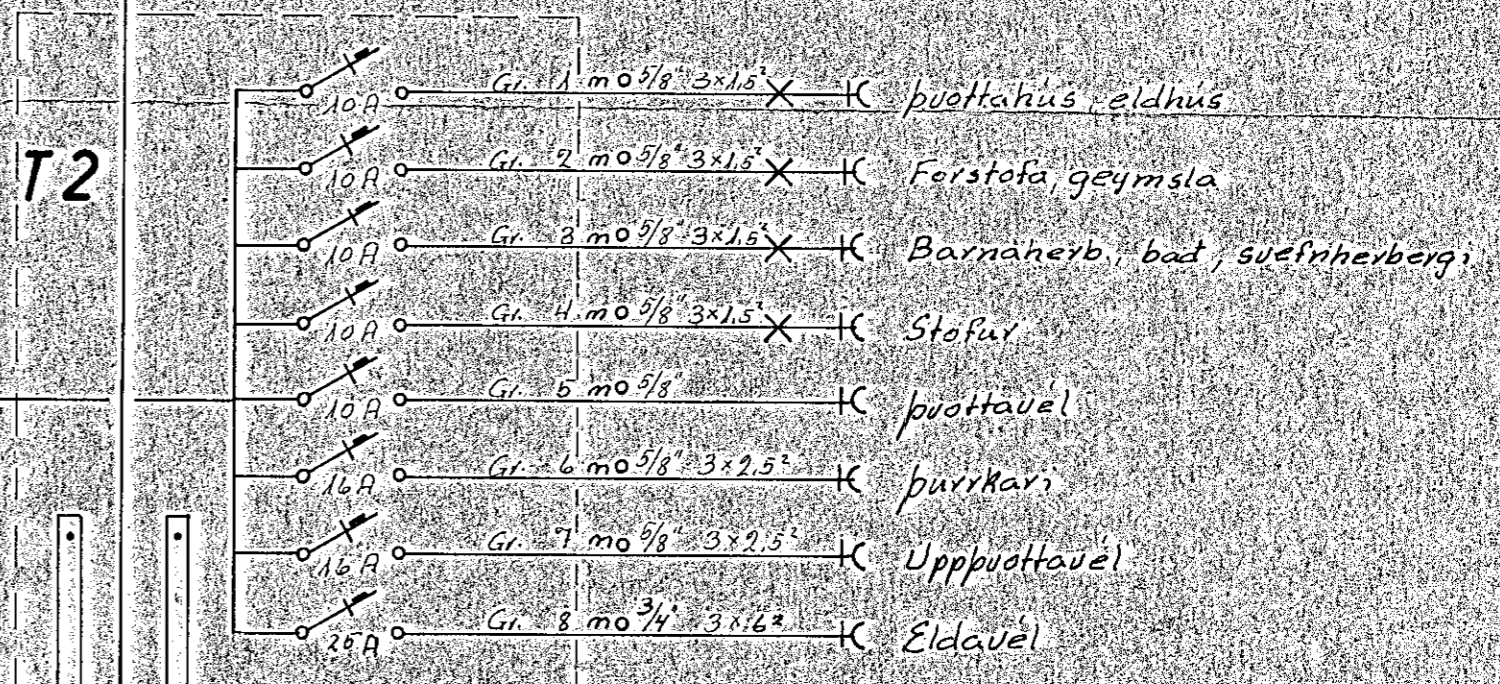 T2
10A Gr. 1 mo 5/8" 3x1,5² þvottahús, eldhús
10A Gr. 2 mo 5/8" 3x1,5² Forstofa, geymsla
10A Gr. 3 mo 5/8" 3x1,5² Barnaherb., bað, svefnherbergi
10A Gr. 4 mo 5/8" 3x1,5² Stofur
10A Gr. 5 mo 5/8" þvottavél
16A Gr. 6 mo 5/8" 3x2,5² þurrkari
16A Gr. 7 mo 5/8" 3x2,5² Uppþvottavél
25A Gr. 8 mo 3/4" 3x6² Eldavél